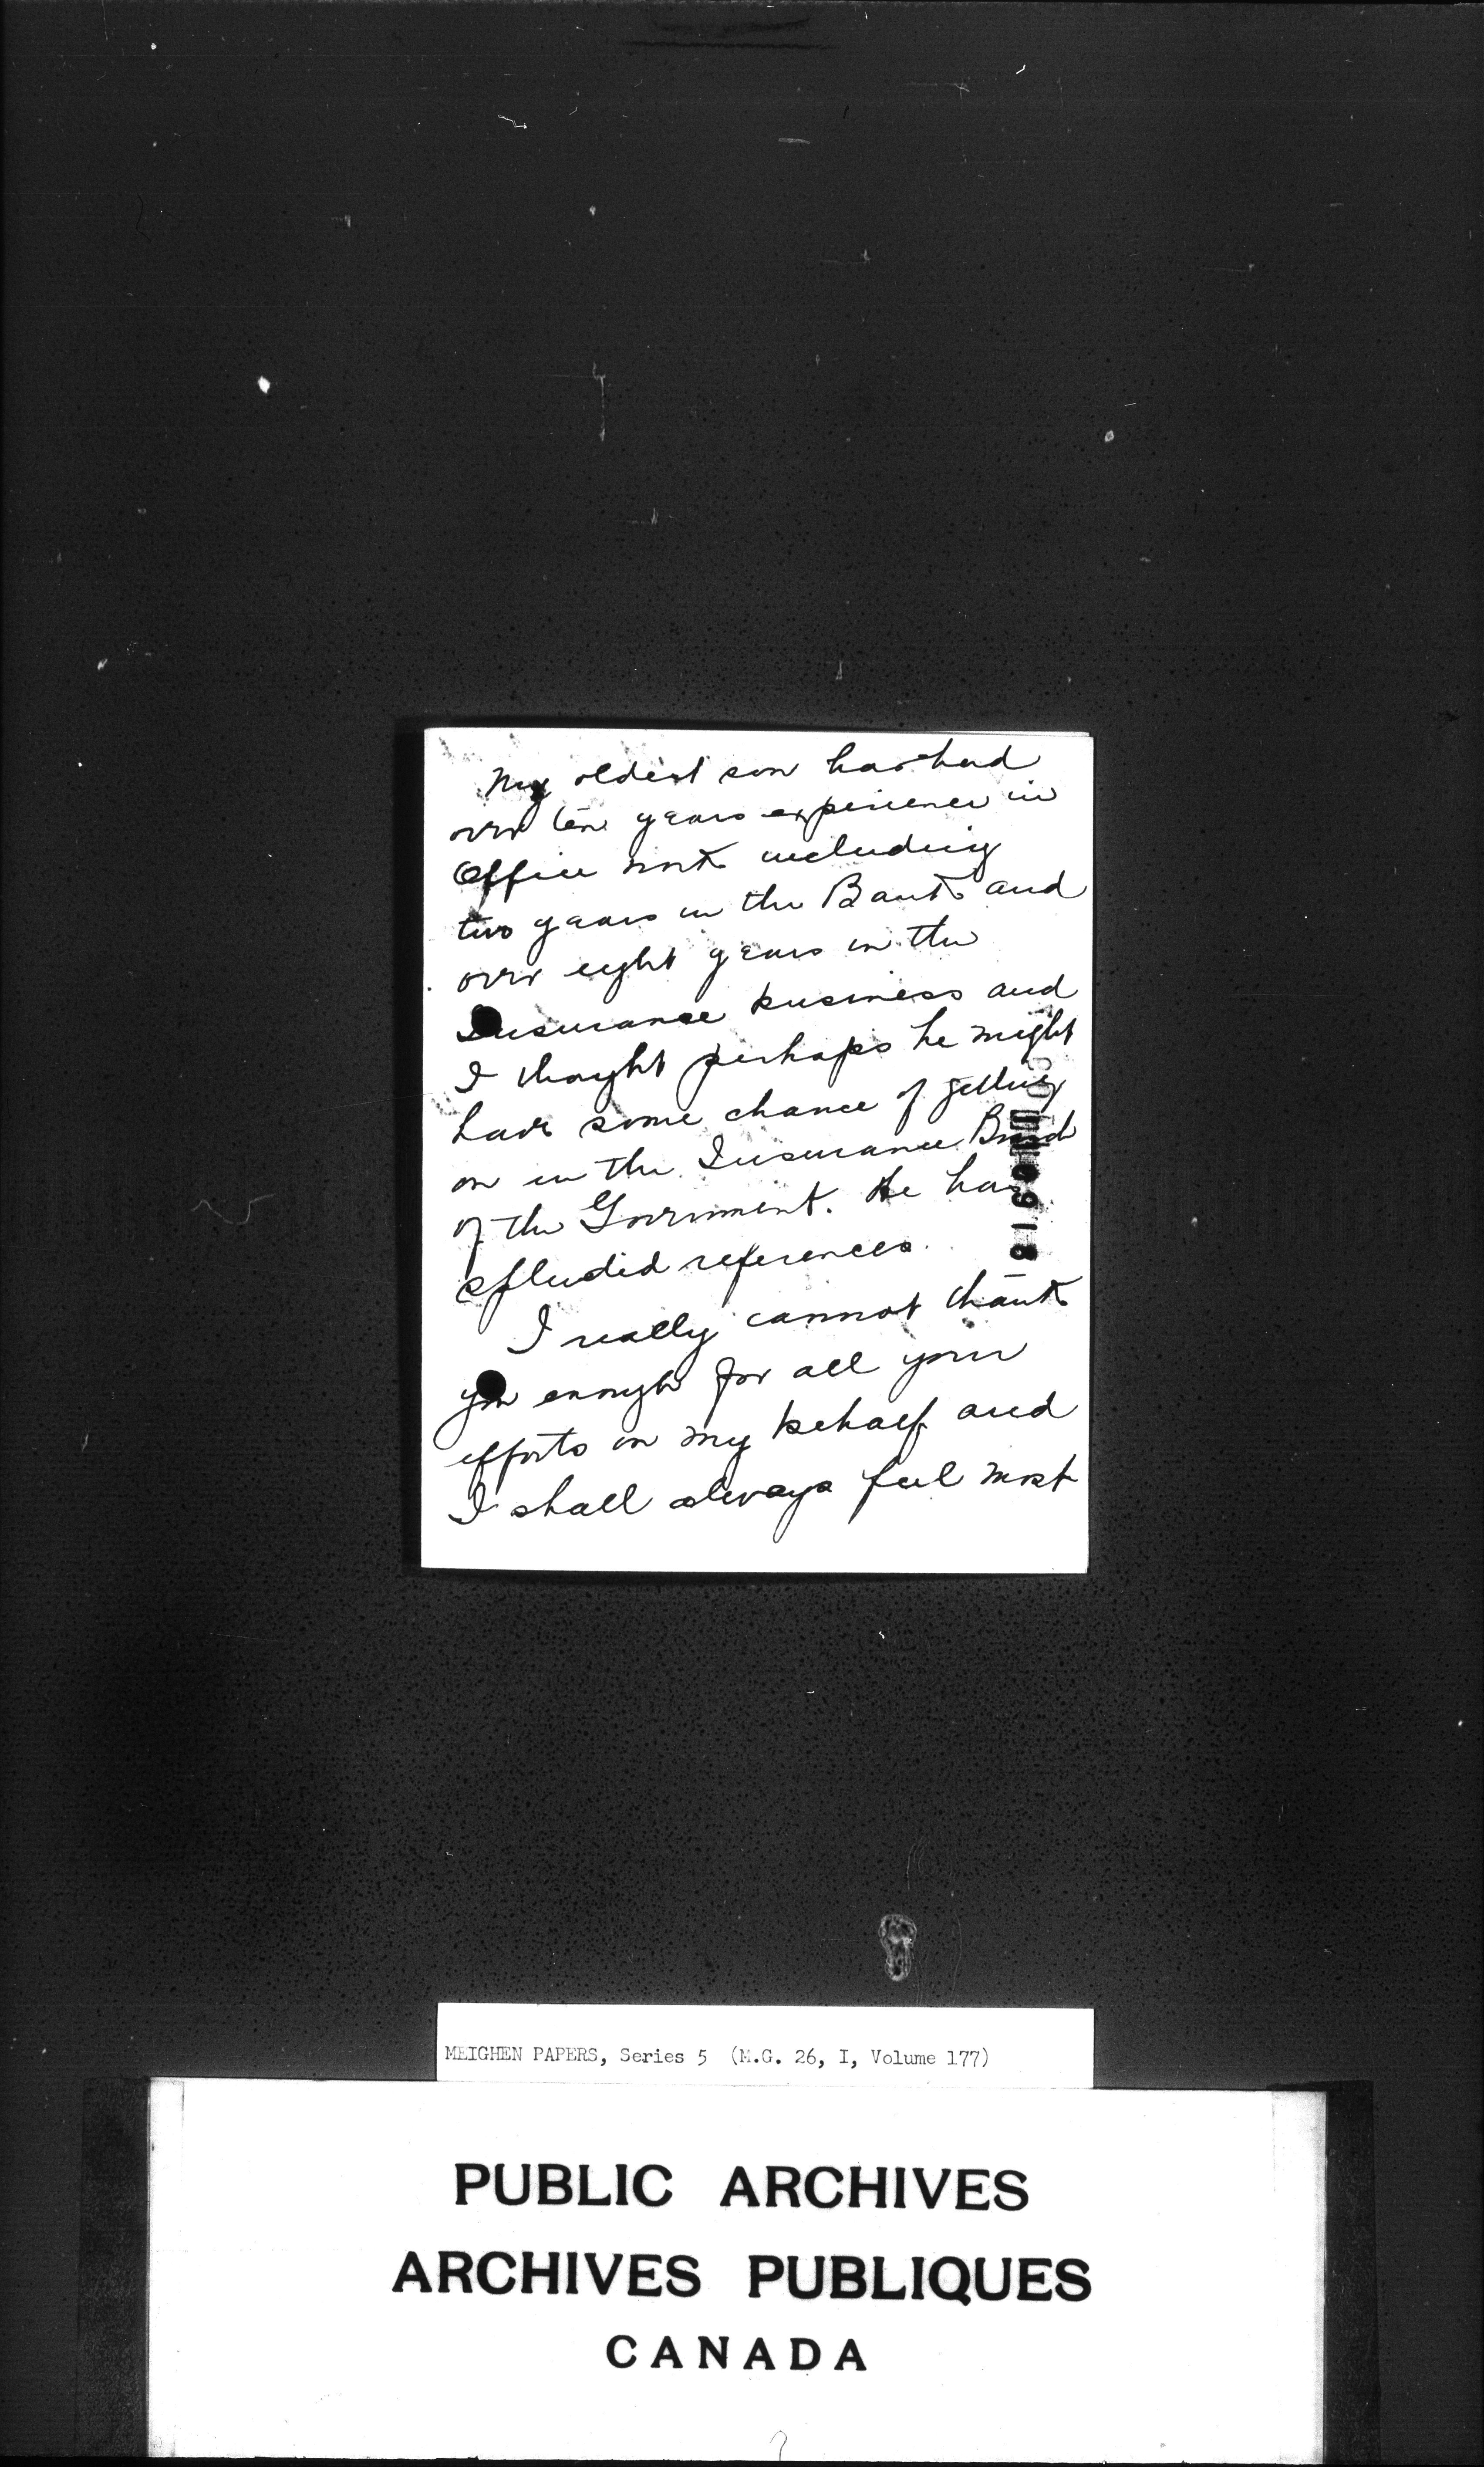 My oldest son has had
over ten years experience in
Office work including
two years in the Bank and
over eight years in the
Insurance business and
I thought perhaps he might
have some chance of getting
on in the Insurance
of the Government. He has
splendid references.
I really cannot thank
you enough for all your
efforts on my behalf and
I shall always feel most
MEIGHEN PAPERS, Series 5 (M.G. 26, I, Volume 177)
PUBLIC ARCHIVES
ARCHIVES PUBLIQUES
CANADA